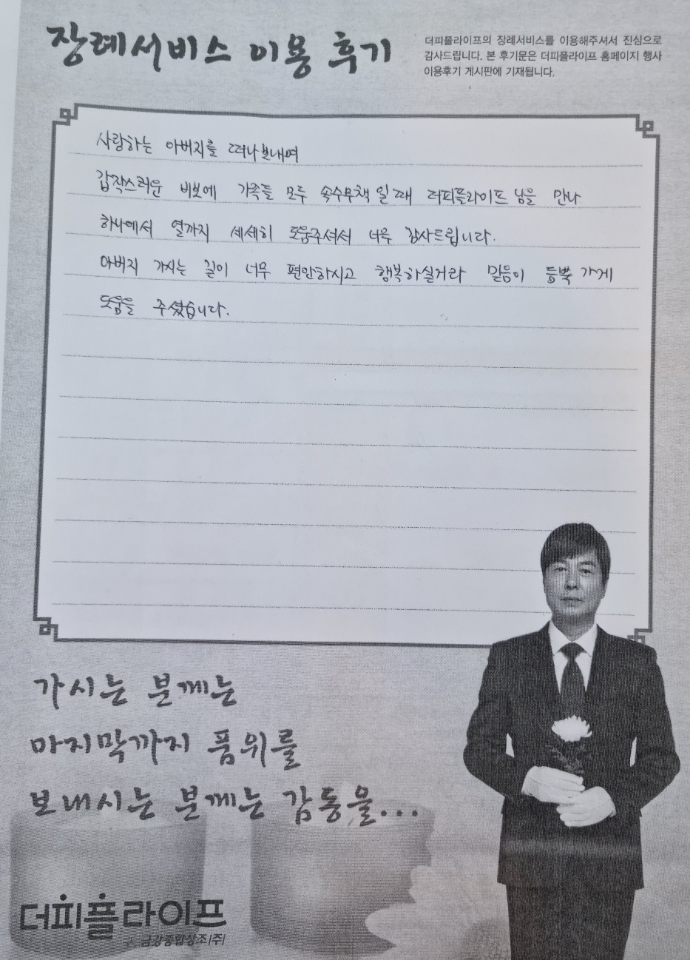 장례서비스 이용 후기
더피플라이프의 장례서비스를 이용해주셔서 진심으로
감사드립니다. 본 후기문은 더피플라이프 홈페이지 행사
이용후기 게시판에 기재됩니다.
사랑하는 아버지를 떠나보내며
갑작스러운 비보에 가족들 모두 속수무책 일때 더피플라이프님을 만나
하나에서 열까지 세세히 도움주셔서 너무 감사드립니다.
아버지 가시는 길이 너무 편안하시고 행복하실거라 믿음이 듬뿍 가게
도움을 주셨습니다.
가시는 분께는
마지막까지 품위를
보내시는 분께는 감동을...
더피플라이프
구 금강종합상조(주)